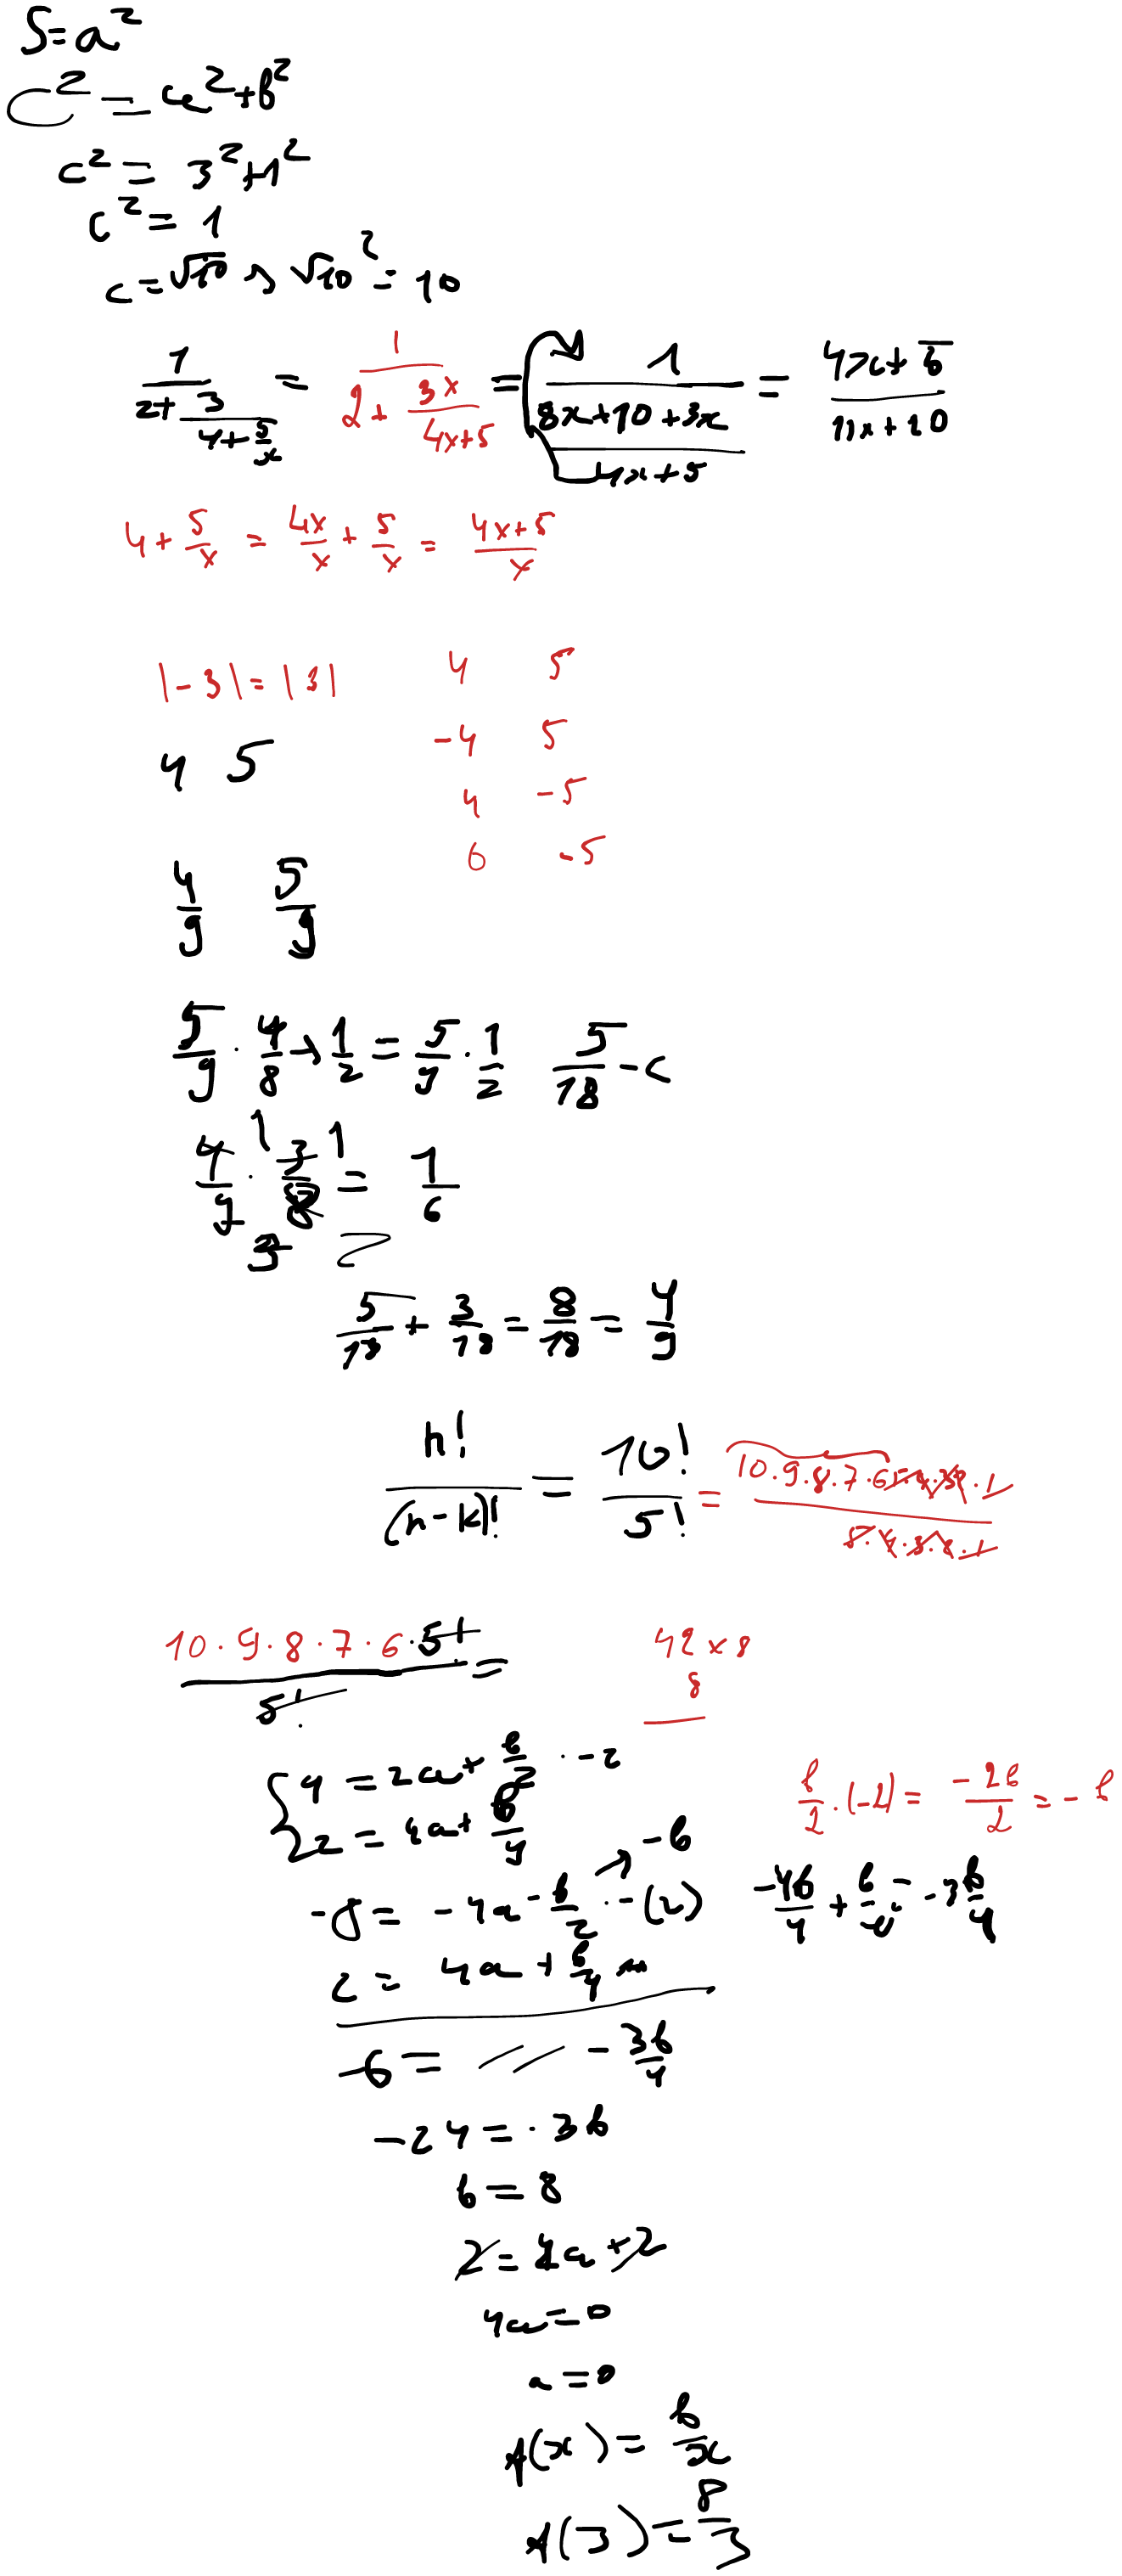 S=a²
c²=a²+b²
c²=3²+1²
c²=1
c=√10 → √10²=10
1/(2+3/(4+5/x)) = 1/(2+3x/(4x+5)) = 1/((8x+10+3x)/(4x+5)) = (4x+5)/(11x+10)
4+5/x = 4x/x+5/x = (4x+5)/x
|-3|=|3|
4 5
4 5
-4 5
4 -5
6 -5
4/9 5/9
5/9·4/8→1/2=5/9·1/2 5/18-c
4/9·3/8=1/6
1 1
3 2
5/18+3/18=8/18=4/9
n!/(n-k)!=10!/5!=10·9·8·7·6·5·4·3·2·1/5·4·3·2·1
10·9·8·7·6·5!/5!=
42×8
8
4=2a+b/2 ·-2
2=4a+b/4
b/2·(-2)=-2b/2=-b
-8=-4a-b/2·-(2) → -b
-4b/4+b/4=-3b/4
2=4a+b/4
-6= // -3b/4
-24=·3b
b=8
2=4a+2
4a=0
a=0
A(x)=b/x
A(3)=8/3